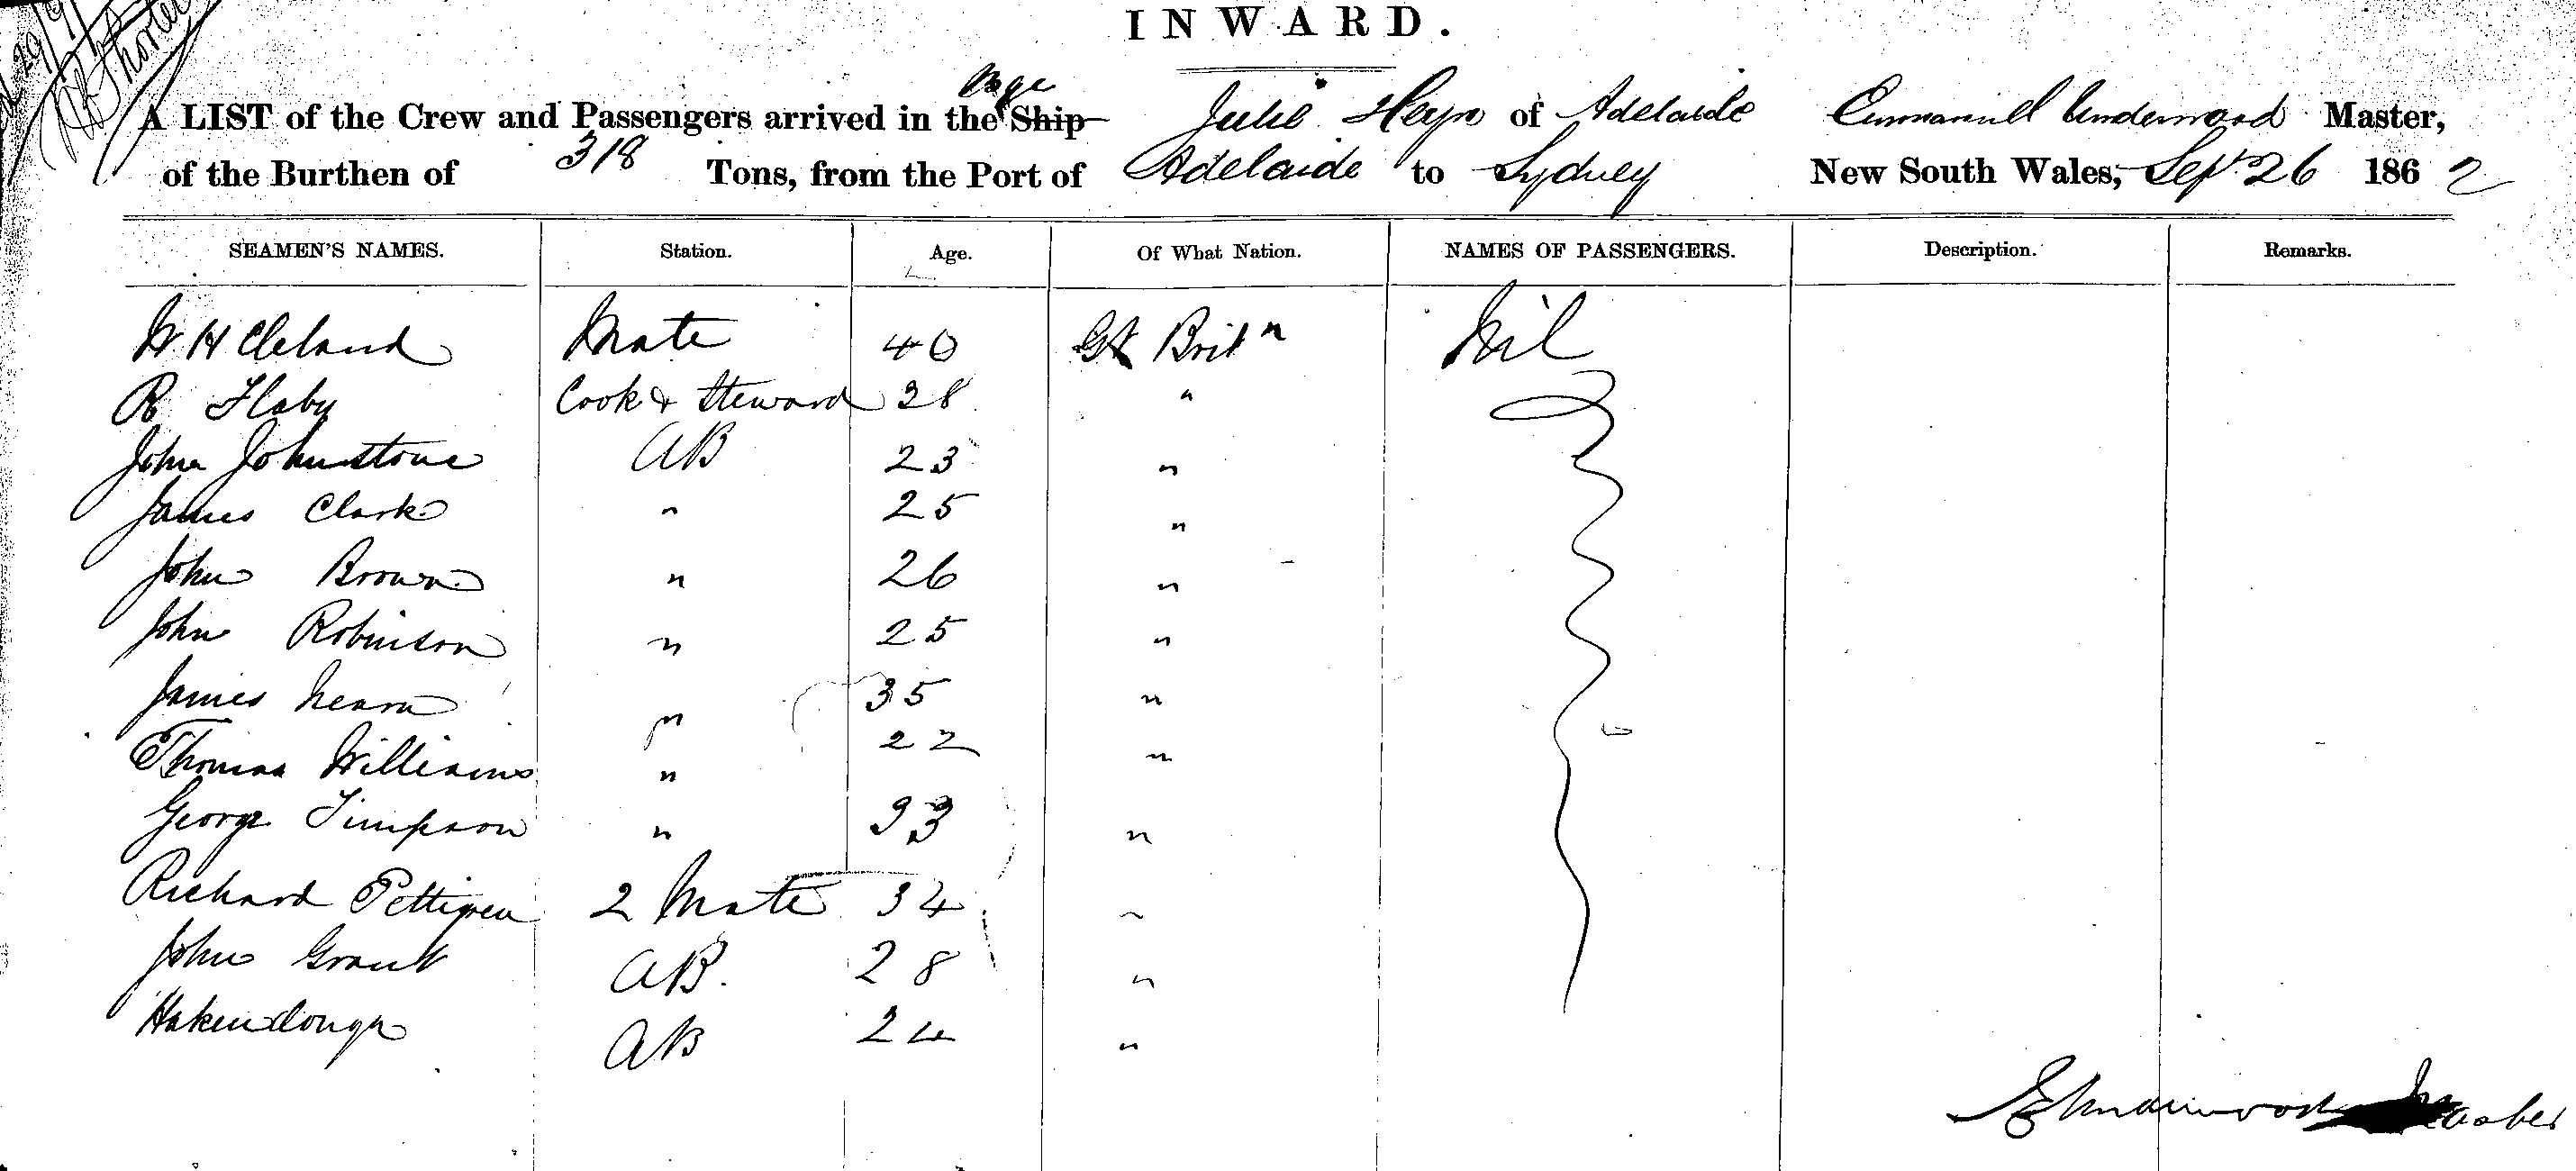 INWARD.
A LIST of the Crew and Passengers arrived in the Bge Ship Julie Heyn of Adelaide Emmanuel Underwood Master,
of the Burthen of 318 Tons, from the Port of Adelaide to Sydney New South Wales, Sep. 26 1862
SEAMEN'S NAMES. Station. Age. Of What Nation. NAMES OF PASSENGERS. Description. Remarks.
W H Cleland Mate 40 Gt Britn Nil
R Cook & Steward 38 "
John Johnstone AB 23 "
James Clark " 25 "
John Brown " 26 "
John Robinson " 25 "
James " 35 "
Thomas Williams " 22 "
George Simpson " 33 "
Richard Pettigrew 2 Mate 34 "
John Grant AB. 28 "
AB 24 "
E Underwood Master